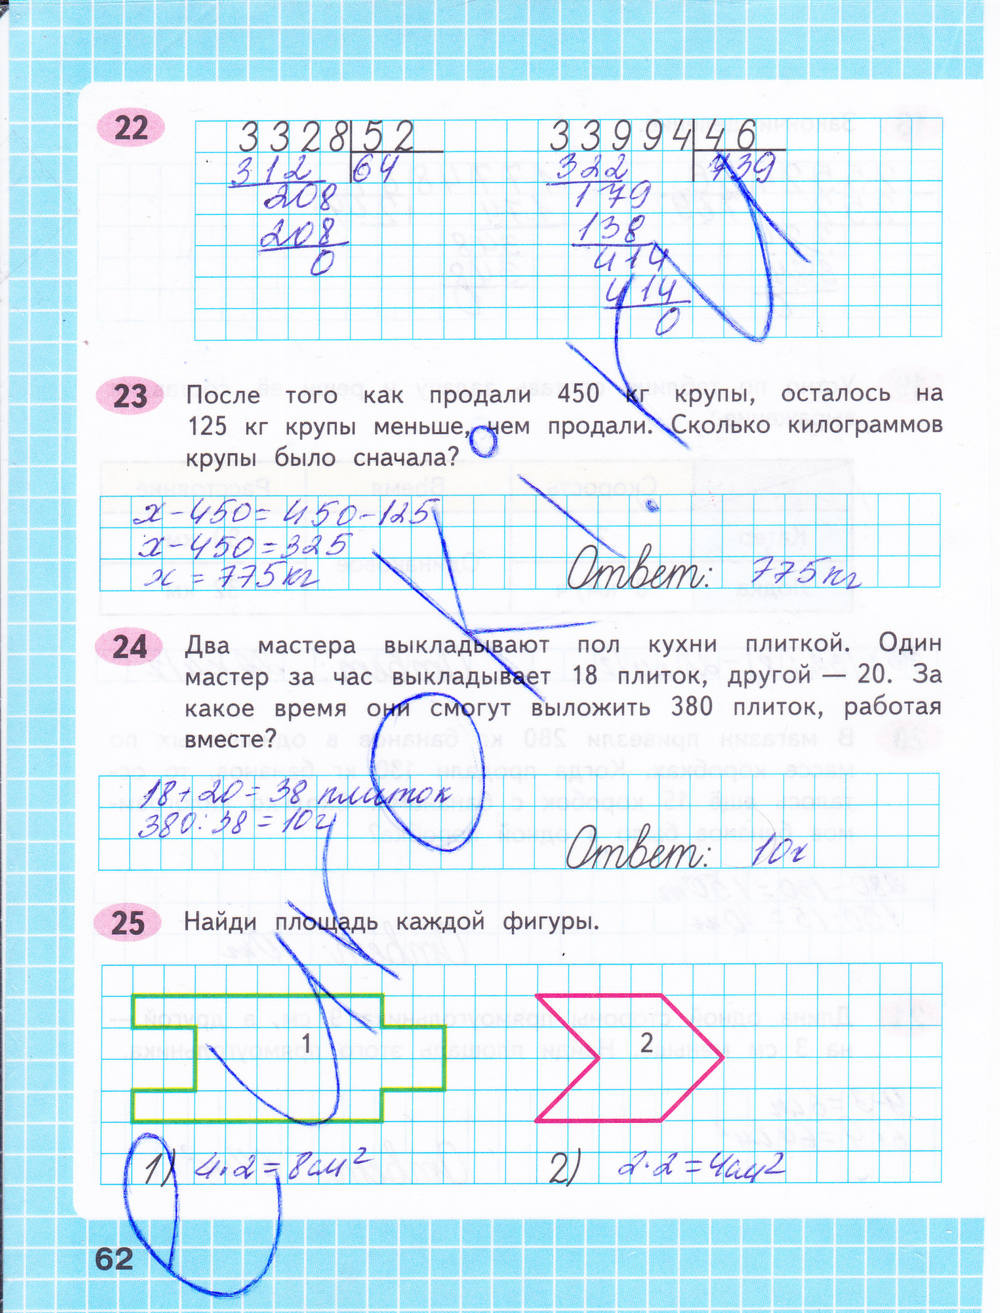 22
3328 52
312 64
208
208
0
33994 46
322 739
179
138
414
414
0
23 После того как продали 450 кг крупы, осталось на
125 кг крупы меньше, чем продали. Сколько килограммов
крупы было сначала?
x - 450 = 450 - 125
x - 450 = 325
x = 775 кг
Ответ: 775 кг
24 Два мастера выкладывают пол кухни плиткой. Один
мастер за час выкладывает 18 плиток, другой — 20. За
какое время они смогут выложить 380 плиток, работая
вместе?
18 + 20 = 38 плиток
380 : 38 = 10 ч
Ответ: 10 ч
25 Найди площадь каждой фигуры.
1
2
1) 4 · 2 = 8 см²
2) 2 · 2 = 4 см²
62